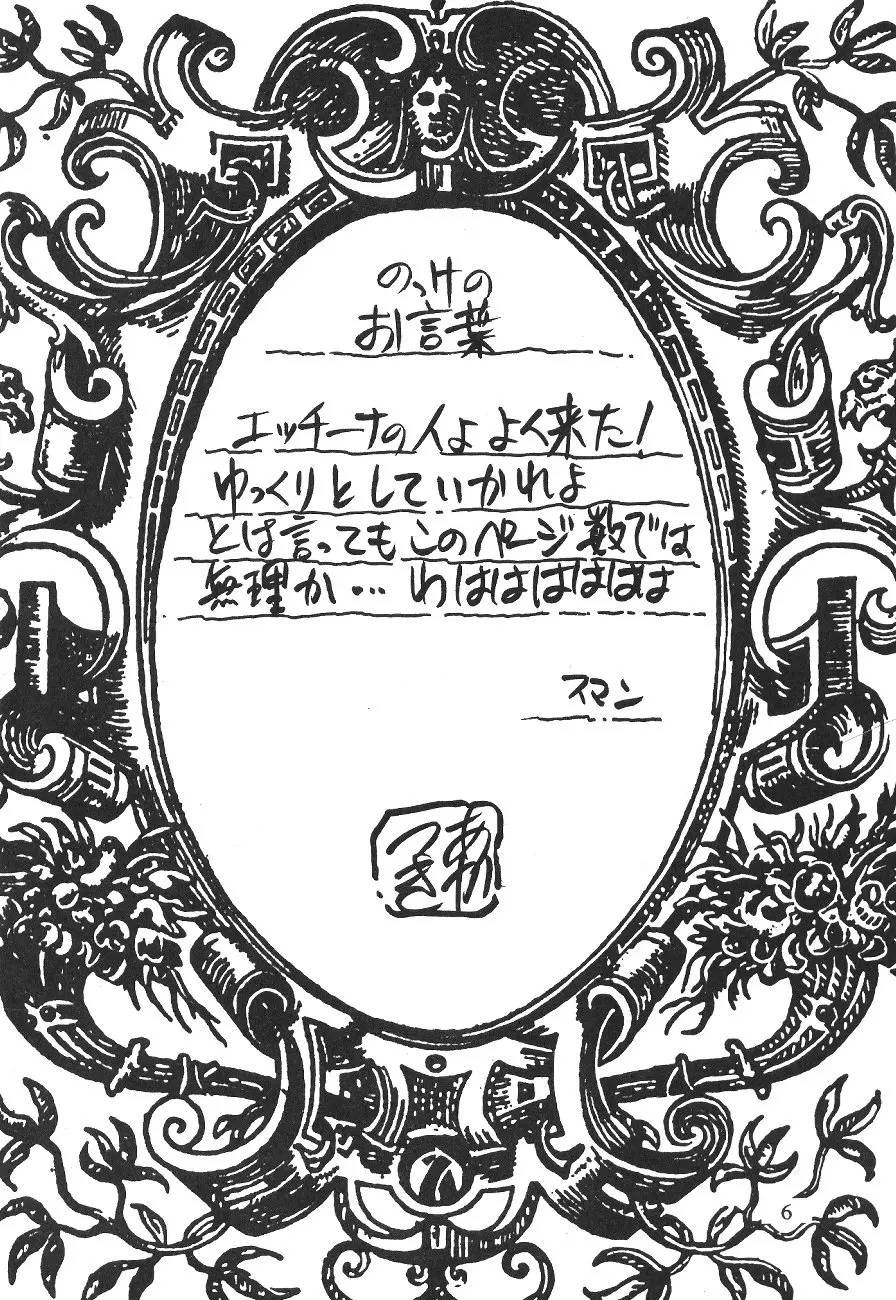 のっけの
お言葉
エッチーナの人よ よく来た!
ゆっくりとしていかれよ
とは言っても このページ数では
無理か… わははははははは
スマン
あか
つき
6